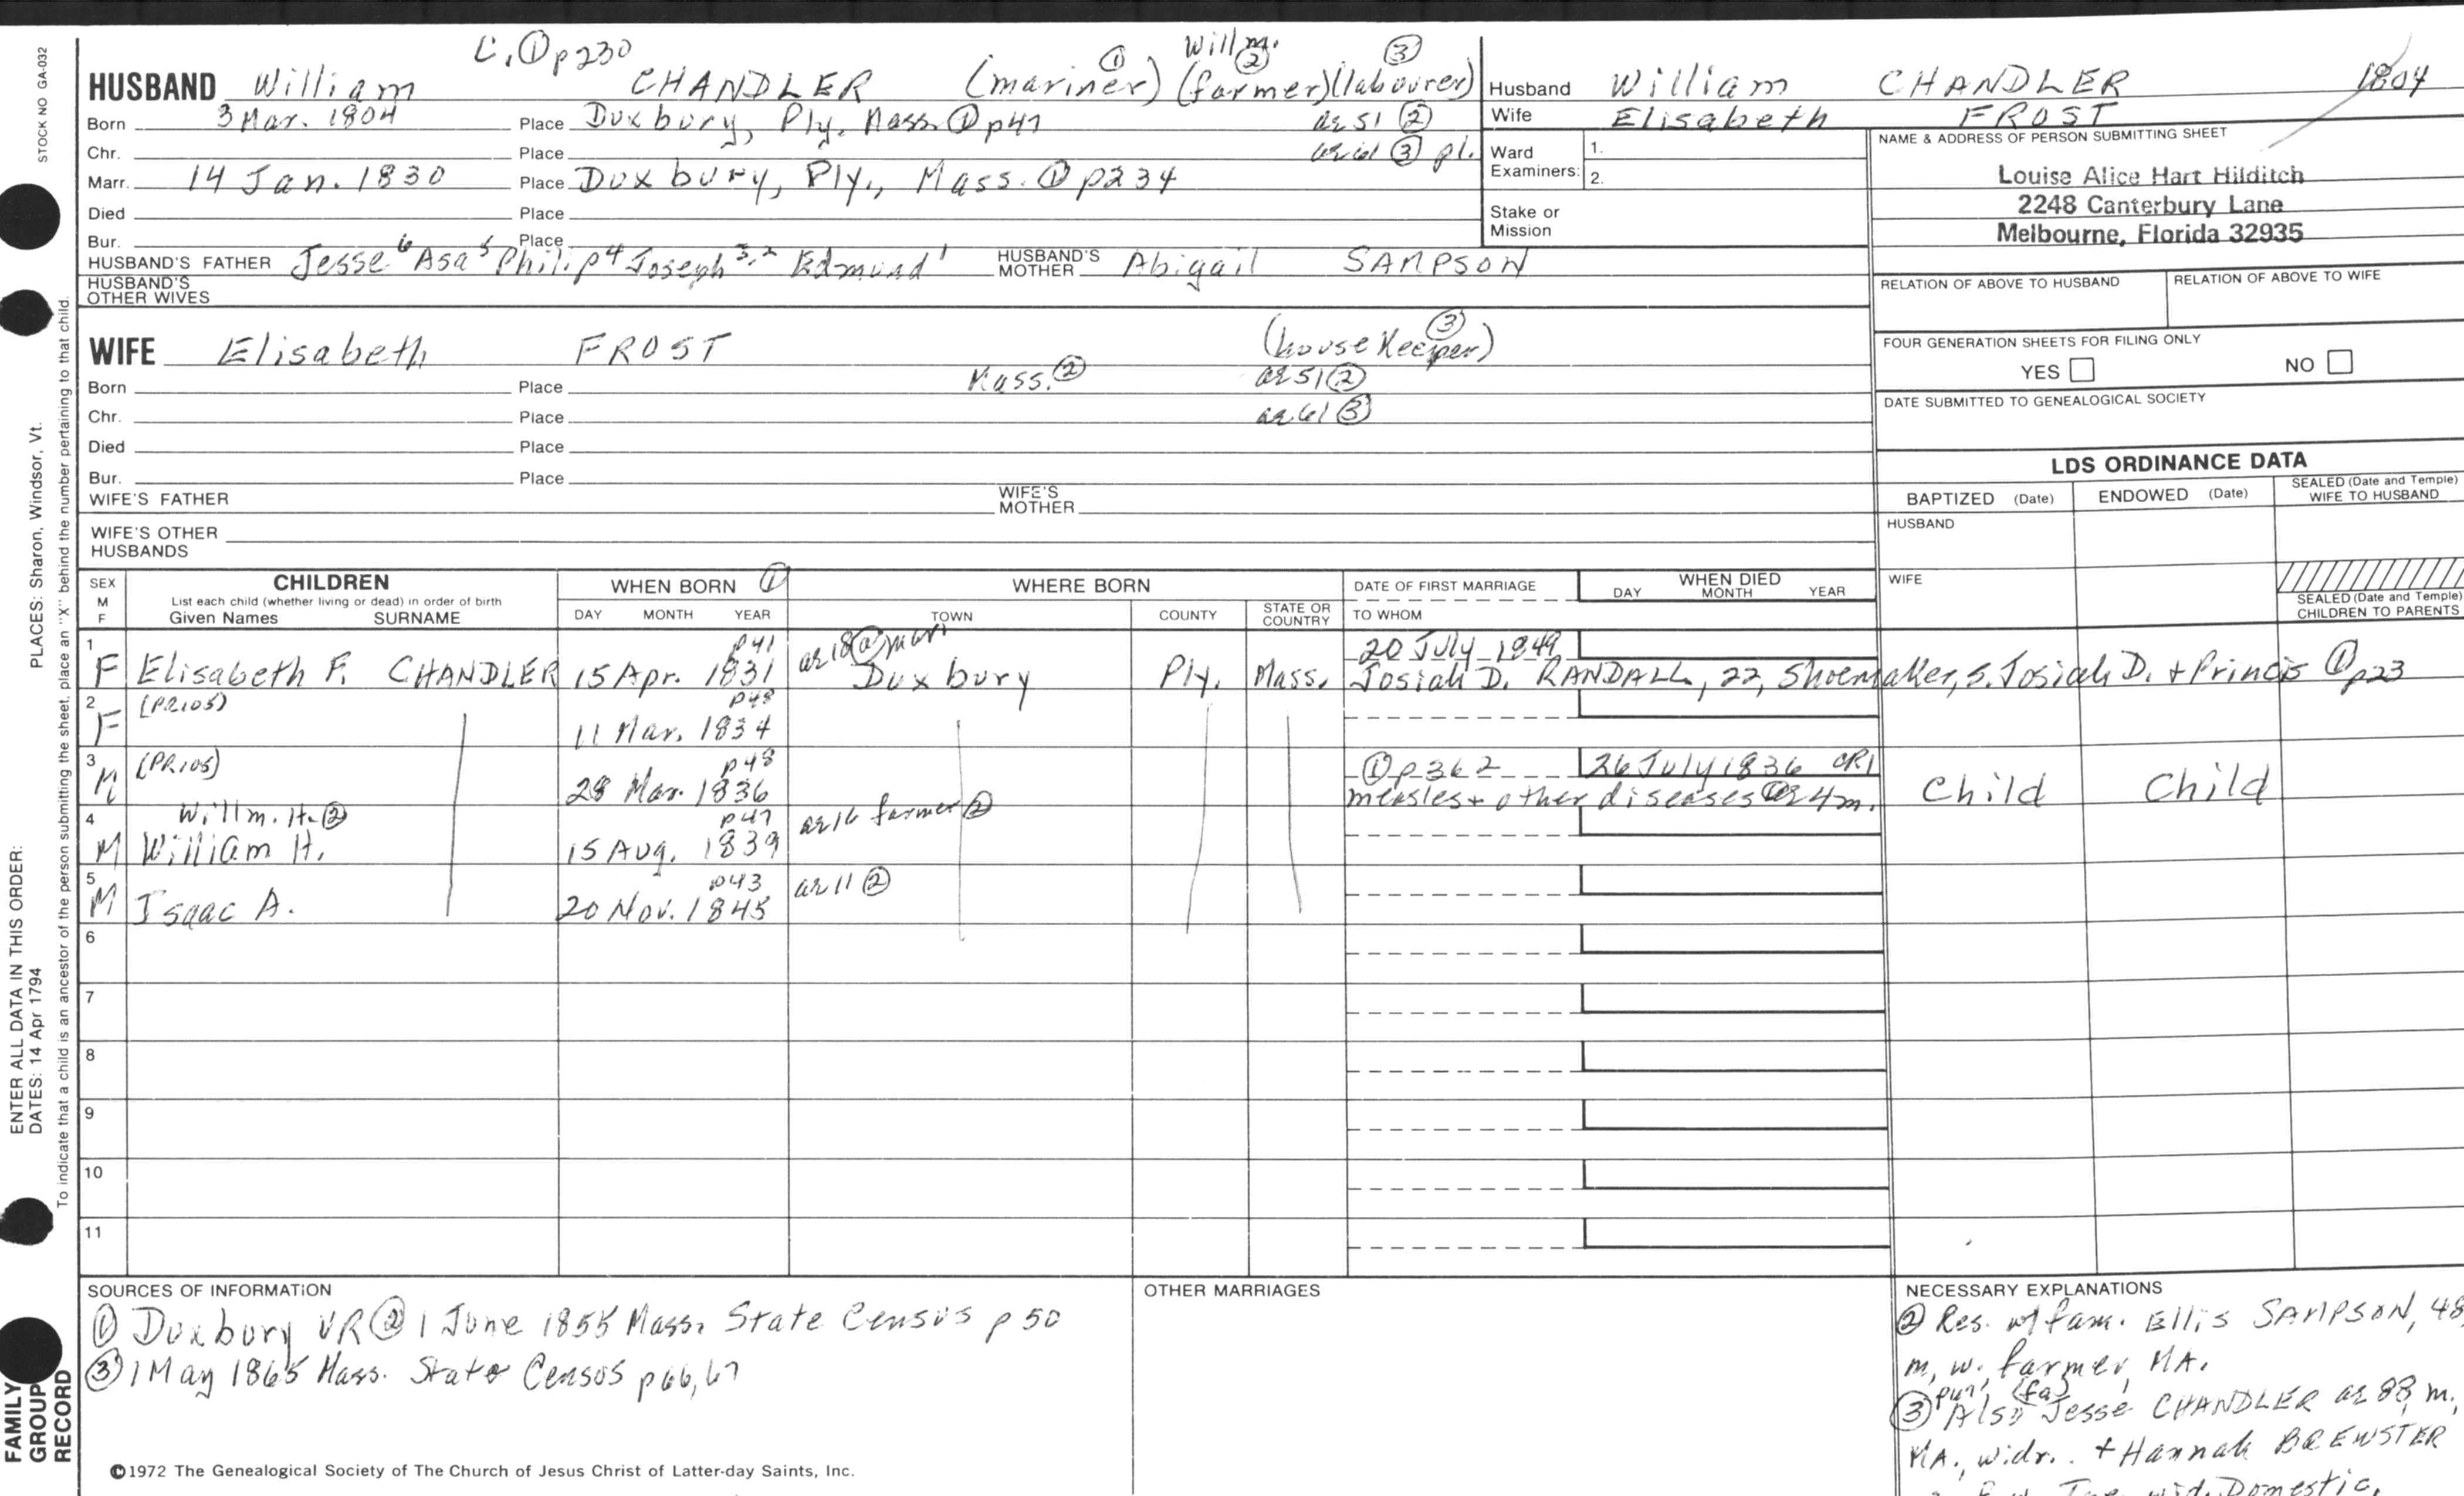 STOCK NO GA-032
C. ① p230
Willm.
① ② ③
HUSBAND William CHANDLER (mariner) (farmer) (labourer)
Born 3 Mar. 1804 Place Duxbury, Ply. Mass. ① p47 ae 51 ②
Chr. Place ae 61 ③ pl.
Marr. 14 Jan. 1830 Place Duxbury, Ply., Mass. ① p234
Died Place
Bur. Place
HUSBAND'S FATHER Jesse⁶ Asa⁵ Philip⁴ Joseph³,² Edmund¹ HUSBAND'S MOTHER Abigail SAMPSON
HUSBAND'S OTHER WIVES
Husband William CHANDLER 1804
Wife Elisabeth FROST
Ward Examiners: 1.
2.
Stake or Mission
NAME & ADDRESS OF PERSON SUBMITTING SHEET
Louise Alice Hart Hilditch
2248 Canterbury Lane
Melbourne, Florida 32935
RELATION OF ABOVE TO HUSBAND RELATION OF ABOVE TO WIFE
FOUR GENERATION SHEETS FOR FILING ONLY
YES NO
DATE SUBMITTED TO GENEALOGICAL SOCIETY
WIFE Elisabeth FROST (house Keeper) ③
Born Place Mass. ② ae 51 ②
Chr. Place ae 61 ③
Died Place
Bur. Place
WIFE'S FATHER WIFE'S MOTHER
WIFE'S OTHER HUSBANDS
LDS ORDINANCE DATA
BAPTIZED (Date) ENDOWED (Date) SEALED (Date and Temple) WIFE TO HUSBAND
HUSBAND
WIFE
SEALED (Date and Temple) CHILDREN TO PARENTS
SEX M F
CHILDREN
List each child (whether living or dead) in order of birth
Given Names SURNAME
WHEN BORN ①
DAY MONTH YEAR
WHERE BORN
TOWN COUNTY STATE OR COUNTRY
DATE OF FIRST MARRIAGE
TO WHOM
WHEN DIED
DAY MONTH YEAR
1 p41 20 July 1849
F Elisabeth F. CHANDLER 15 Apr. 1831 Duxbury Ply. Mass. Josiah D. RANDALL, 22, Shoemaker, s. Josiah D. + Princis ① p23
2 (PR105) p48
F 11 Mar. 1834
3 (PR105) p48 ① p362 26 July 1836 CR1
M 28 Mar. 1836 measles + other diseases ae 4m. Child Child
4 Willm. H. ② p47 ae 16 farmer ②
M William H. 15 Aug. 1839
5 p43 ae 11 ②
M Isaac A. 20 Nov. 1845
6
7
8
9
10
11
SOURCES OF INFORMATION
① Duxbury VR ② 1 June 1855 Mass. State Census p 50
③ 1 May 1865 Mass. State Census p66, 67
OTHER MARRIAGES
NECESSARY EXPLANATIONS
② Res. w/ fam. Ellis SAMPSON, 48,
m, w. farmer, MA.
p47, (fa)
③ Also Jesse CHANDLER ae 88, m.,
MA., widr. + Hannah BREWSTER
wid. Domestic,
©1972 The Genealogical Society of The Church of Jesus Christ of Latter-day Saints, Inc.
ENTER ALL DATA IN THIS ORDER:
DATES: 14 Apr 1794 PLACES: Sharon, Windsor, Vt.
To indicate that a child is an ancestor of the person submitting the sheet, place an "X" behind the number pertaining to that child.
FAMILY
GROUP
RECORD